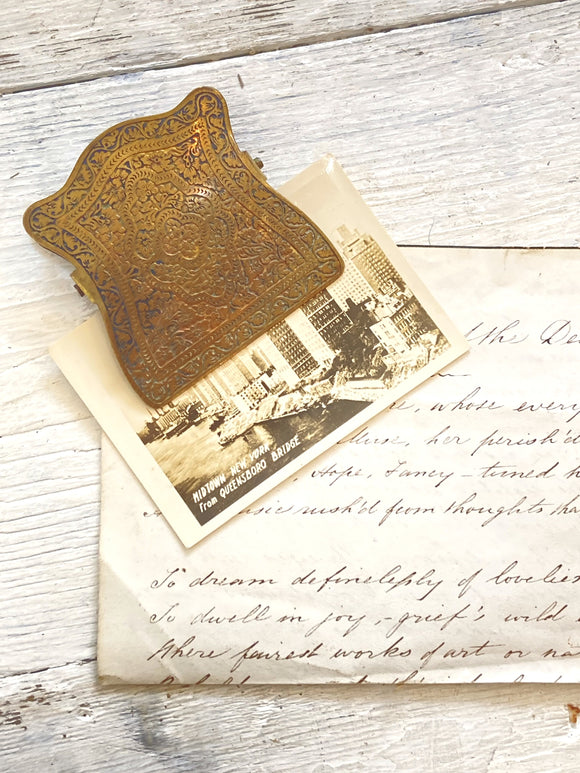 MIDTOWN NEW YORK
from QUEENSBORO BRIDGE
the De
whose every
her perish'd
Hope, Fancy - tuned
rush'd from thoughts tha
To dream definelessly of lovelies
To dwell in joy, - grief's wild
Where fairest works of art or na